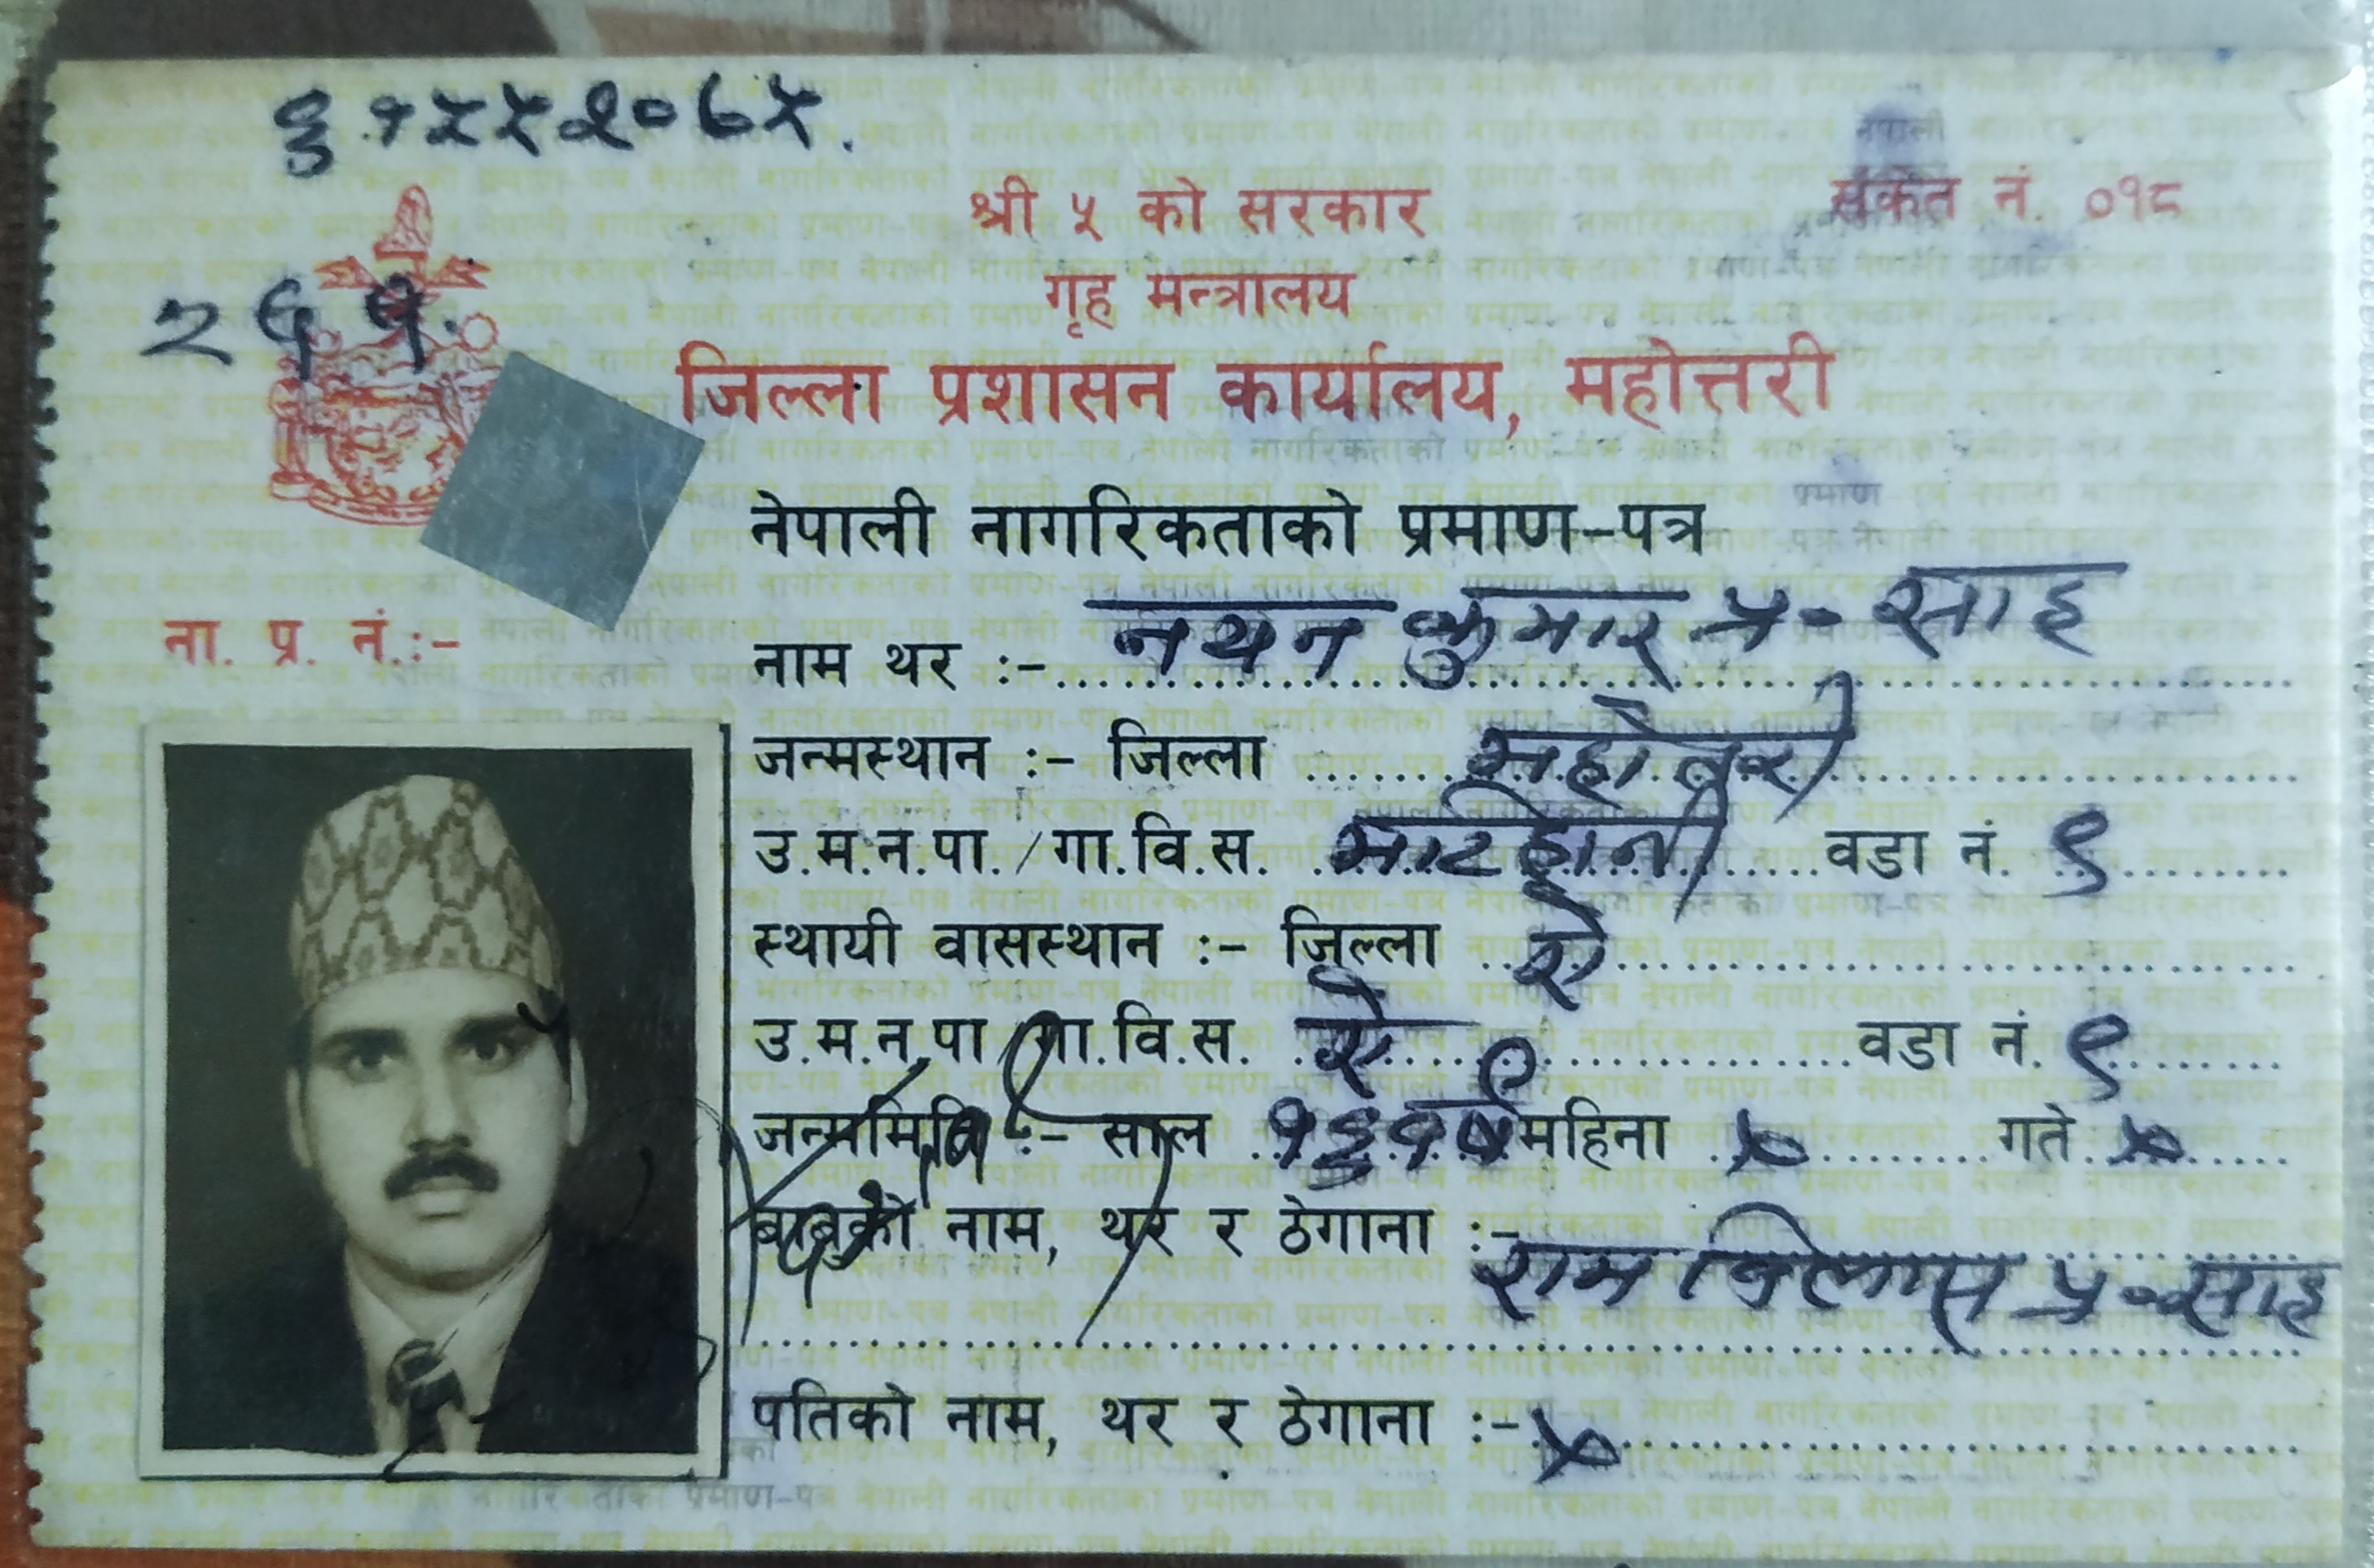 श्री ५ को सरकार
संकेत नं. ०१८
गृह मन्त्रालय
२६१.
जिल्ला प्रशासन कार्यालय, महोत्तरी
नेपाली नागरिकताको प्रमाण-पत्र
ना. प्र. नं.:-
नाम थर :- नयन कुमार प्र॰ साह
जन्मस्थान :- जिल्ला महोत्तरी
उ.म.न.पा./गा.वि.स. माटिहानी वडा नं. ९
स्थायी वासस्थान :- जिल्ला ऐ
उ.म.न.पा/गा.वि.स. ऐ वडा नं. ९
जन्ममिति :- साल महिना × गते ×
बाबुको नाम, थर र ठेगाना :-
राम विलास प्र॰ साह
पतिको नाम, थर र ठेगाना :- ×